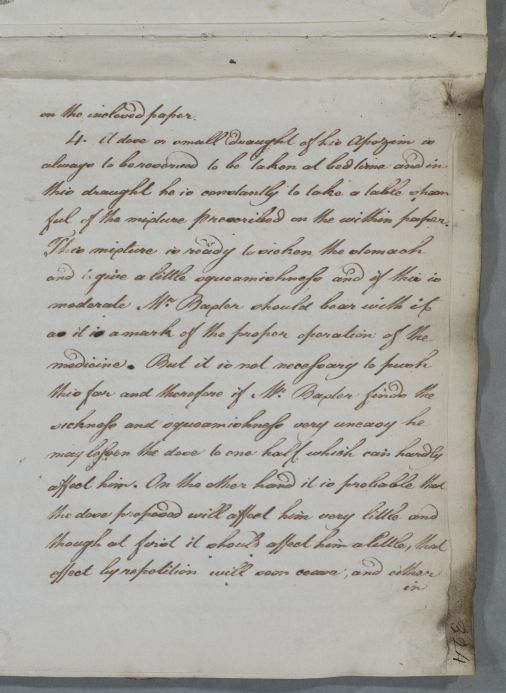 on the inclosed paper.
4. A dose or small draught of his Apozem is
always to be reserved to be taken at bed time and in
this draught he is constantly to take a table spoon
ful of the mixture prescribed on the within paper.
This mixture is ready to sicken the stomach
and give a little squeamishness and if this is
moderate Mr. Baxter should bear with it
as it is a mark of the proper operation of the
medicine. But it is not necessary to push
this far and therefore if Mr. Baxter finds the
sickness and squeamishness very uneasy he
may lessen the dose to one half which can hardly
affect him. On the other hand it is probable that
the dose proposed will affect him very little and
though at first it should affect him a little, that
effect by repetition will soon cease, and either
in